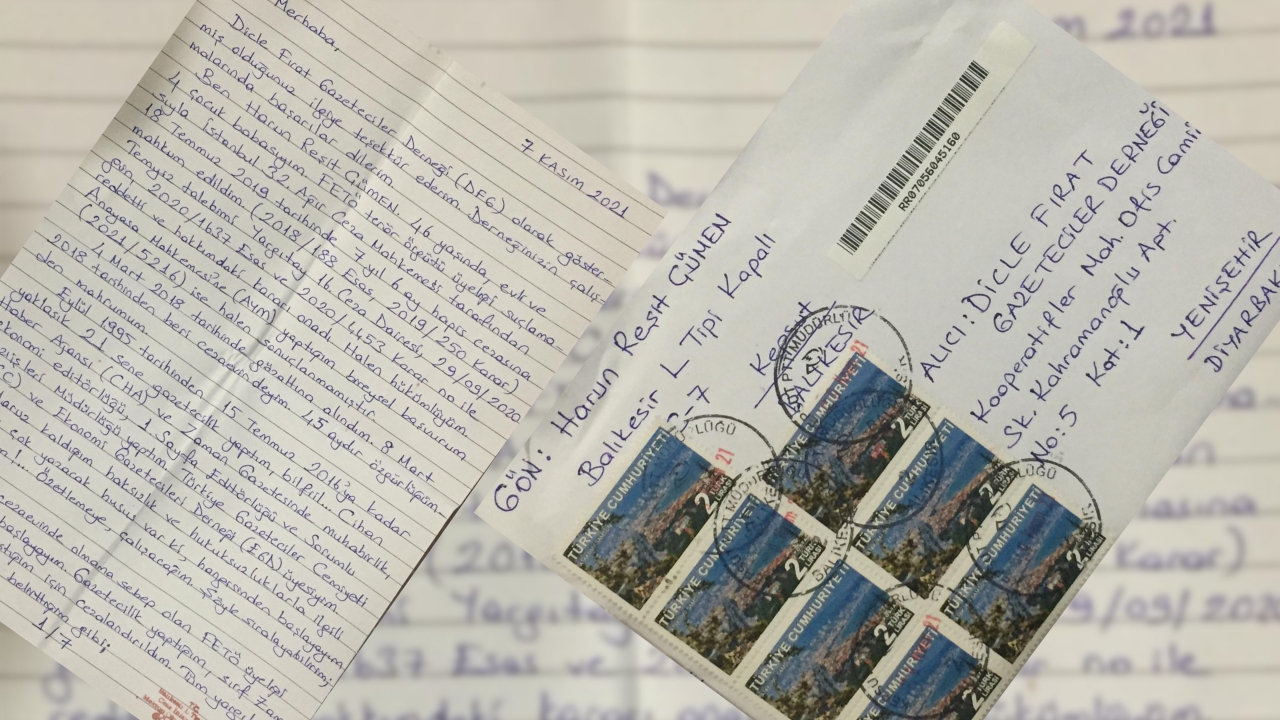 Merhaba,
7 KASIM 2021
Dicle Fırat Gazeteciler Derneği (DFG) olarak göster-
miş olduğunuz ilgiye teşekkür ederim. Derneğinizin çalış-
malarında başarılar dilerim.
Ben Harun Reşit GÜMEN. 46 yaşında, evli ve
4 çocuk babasıyım. FETÖ terör örgütü üyeliği suçlama-
sıyla İstanbul 32. Ağır Ceza Mahkemesi tarafından
18 Temmuz 2019 tarihinde 7 yıl 6 ay hapis cezasına
mahkum edildim. (2018/188 Esas, 2019/250 Karar)
Temyiz talebimi Yargıtay 16. Ceza Dairesi, 29/09/2020
gün 2020/1637 Esas ve 2020/4453 Karar no ile
reddetti ve hakkımdaki kararı onadı. Halen hükümlüyüm.
Anayasa Mahkemesi'ne (AYM) yaptığım bireysel başvurum
(2021/5216) ise halen sonuçlanmamıştır.
4 Mart 2018 tarihinde gözaltına alındım. 8 Mart
2018 tarihinden beri cezaevindeyim. 45 aydır özgürlüğüm-
den mahrumum.
Eylül 1995 tarihinden 15 Temmuz 2016'ya kadar
yaklaşık 21 sene gazetecilik yaptım, bilfiil... Cihan
Haber Ajansı (CHA) ve Zaman Gazetesinde muhabirlik,
ekonomi editörlüğü, 1. Sayfa Editörlüğü ve Sorumlu
Yazıişleri Müdürlüğü yaptım. Türkiye Gazeteciler Cemiyeti
(TGC) ve Ekonomi Gazetecileri Derneği (EGD) üyesiyim.
maruz kaldığım haksızlık ve hukuksuzluklarla ilgili
çok yazacak husus var ki, hangisinden başlayayım
Özetlemeye çalışacağım. Şöyle sıralayabilirim;
cezaevinde olmama sebep olan FETÖ üyeliği
başlayayım. Gazetecilik yaptığım, sırf Zaman
için cezalandırıldım. Tüm yargıl
belirttiğim gibi;
1/7
RR07056045160
GÖN: Harun Reşit GÜMEN
Balıkesir L Tipi Kapalı
-7
Kepsut
BALIKESİR
ALICI: DİCLE FIRAT
GAZETECİLER DERNEĞİ
Kooperatifler Mah. Ofis Camii
Sk. Kahramanoğlu Apt.
No:5 Kat:1
YENİŞEHİR
DİYARBAK
TÜRKİYE CUMHURİYETİ
2 TÜRK LİRASI
TÜRKİYE CUMHURİYETİ
2 TÜRK LİRASI
TÜRKİYE CUMHURİYETİ
2 TÜRK LİRASI
TÜRKİYE CUMHURİYETİ
2 TÜRK LİRASI
TÜRKİYE CUMHURİYETİ
2 TÜRK LİRASI
TÜRKİYE CUMHURİYETİ
2 TÜRK LİRASI
CUMHURİYETİ
2 TÜRK LİRASI